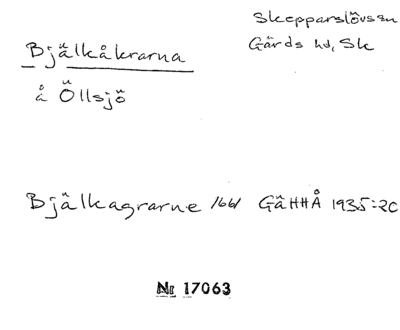 Skepparslövssn
Gärds hd, Sk
Bjälkåkrarna
å Öllsjö
Bjälkagrarne 1661 GäHHÅ 1935:20
Nr 17063